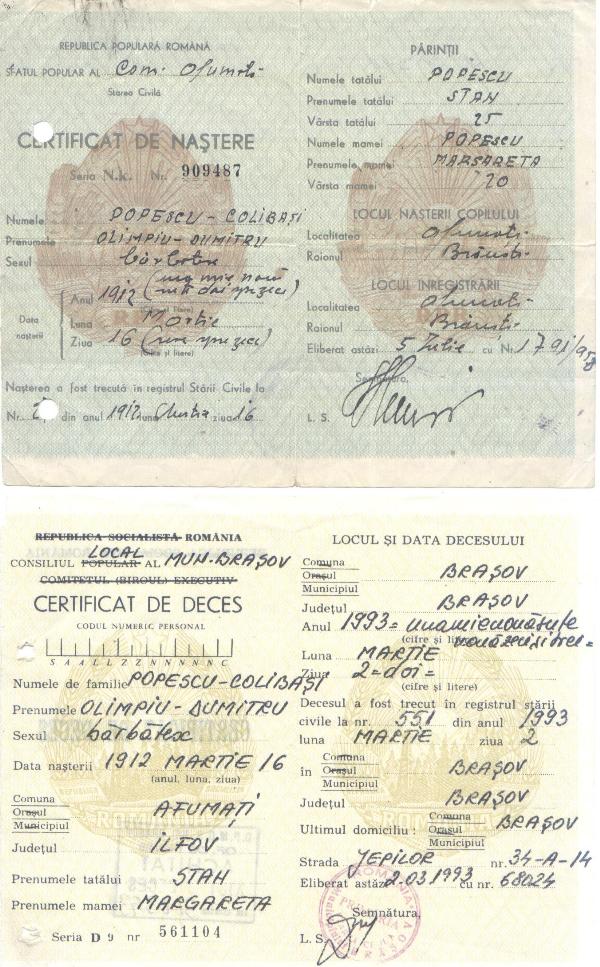 REPUBLICA POPULARĂ ROMÂNĂ
SFATUL POPULAR AL Com. Afumati
Starea Civilă
CERTIFICAT DE NAȘTERE
Seria N.k. Nr. 909487
Numele POPESCU - COLIBAȘI
Prenumele OLIMPIU - DUMITRU
Sexul bărbătesc
Data nașterii
Anul 1912 (una mie nouă
sute doi spre zeci)
Luna Martie
Ziua 16
(cifre și litere)
Nașterea a fost trecută în registrul Stării Civile la
Nr. din anul 1912 luna Martie ziua 16
PĂRINȚII
Numele tatălui POPESCU
Prenumele tatălui STAN
Vârsta tatălui 25
Numele mamei POPESCU
Prenumele mamei MARGARETA
Vârsta mamei 20
LOCUL NAȘTERII COPILULUI
Localitatea Afumati
Raionul Brănești
LOCUL INREGISTRĂRII
Localitatea Afumati
Raionul Brănești
Eliberat astăzi 5 Iulie cu Nr. 1791/958
Semnătura,
L. S.
REPUBLICA SOCIALISTĂ ROMÂNIA
LOCAL
CONSILIUL POPULAR AL MUN. BRAȘOV
COMITETUL (BIROUL) EXECUTIV
CERTIFICAT DE DECES
CODUL NUMERIC PERSONAL
S A A L L Z Z N N N N N C
Numele de familie POPESCU - COLIBAȘI
Prenumele OLIMPIU - DUMITRU
Sexul bărbătesc
Data nașterii 1912 MARTIE 16
(anul, luna, ziua)
Comuna
Orașul
Municipiul
AFUMAȚI
Județul ILFOV
Prenumele tatălui STAN
Prenumele mamei MARGARETA
Seria D 9 nr 561104
LOCUL ȘI DATA DECESULUI
Comuna
Orașul
Municipiul
BRAȘOV
Județul BRAȘOV
Anul 1993 = unamienouăsute
(cifre și litere) nouăzecișitrei =
Luna MARTIE
Ziua 2 = doi =
(cifre și litere)
Decesul a fost trecut în registrul stării
civile la nr. 551 din anul 1993
luna MARTIE ziua 2
în
Comuna
Orașul
Municipiul
BRAȘOV
Județul BRAȘOV
Ultimul domiciliu :
Comuna
Orașul
Municipiul
BRAȘOV
Strada JEPILOR nr. 34-A-14
Eliberat astăzi 2.03.1993 cu nr. 68024
Semnătura,
L. S.